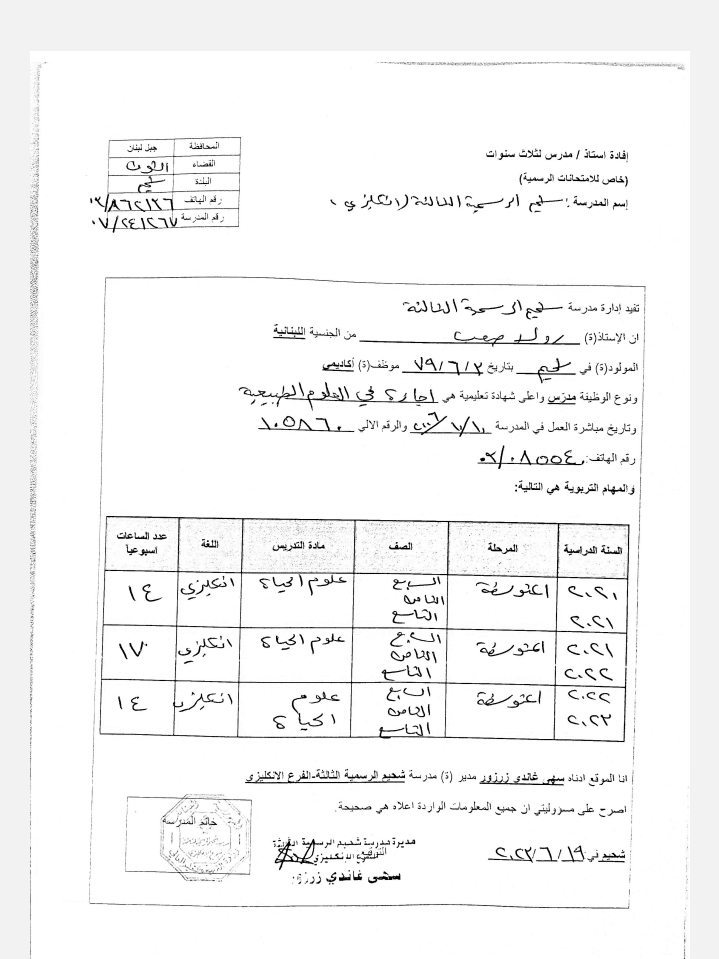 إفادة استاذ / مدرس لثلاث سنوات
(خاص للامتحانات الرسمية)
إسم المدرسة : شحيم الرسمية الثالثة (انكليزي)
المحافظة جبل لبنان
القضاء الشوف
البلدة شحيم
رقم الهاتف ٠٣/٨٦٢١٢٦
رقم المدرسة ٠٧/٢٤١٢٦٧
تفيد إدارة مدرسة شحيم الرسمية الثالثة
ان الإستاذ(ة) رولا صعب من الجنسية اللبنانية
المولود(ة) في شحيم بتاريخ ٧٩/٦/٢ موظف(ة) أكاديمي
ونوع الوظيفة مدرّس واعلى شهادة تعليمية هي اجازة في العلوم الطبيعية
وتاريخ مباشرة العمل في المدرسة والرقم الالي ١٠٥٨٦٠
رقم الهاتف: ٠٣/٠٨٥٥٤٠
والمهام التربوية هي التالية:
السنة الدراسية المرحلة الصف مادة التدريس اللغة عدد الساعات اسبوعيا
٢٠٢١ ٢٠٢١ المتوسطة السابع الثامن التاسع علوم الحياة انكليزي ١٤
٢٠٢١ ٢٠٢٢ المتوسطة السابع الثامن التاسع علوم الحياة انكليزي ١٧
٢٠٢٢ ٢٠٢٣ المتوسطة السابع الثامن التاسع علوم الحياة انكليزي ١٤
انا الموقع ادناه سهى غاندي زرزور مدير (ة) مدرسة شحيم الرسمية الثالثة-الفرع الانكليزي
اصرح على مسؤوليتي ان جميع المعلومات الواردة اعلاه هي صحيحة.
شحيم في ٢٠٢٣/٦/١٩
مديرة مدرسة شحيم الرسمية الثالثة
التوقيع
الفرع الانكليزي
سهى غاندي زرزور
خاتم المدرسة